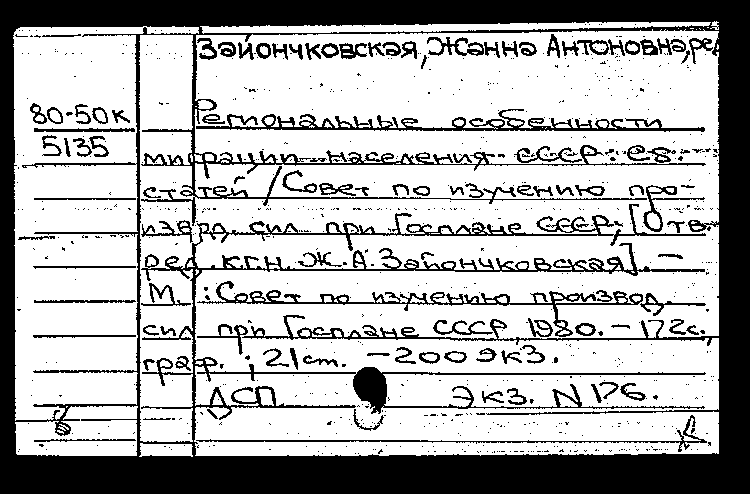 Зайончковская, Жанна Антоновна, ред
80-50к
5135
Региональные особенности
миграции населения СССР: сб.
статей / Совет по изучению про-
изврд. сил при Госплане СССР; [Отв.
ред. к.г.н. Ж.А. Зайончковская]. —
М.: Совет по изучению производ.
сил при Госплане СССР, 1980. - 172с.,
граф. ; 21см. - 200 экз.
ДСП Экз. N 176.